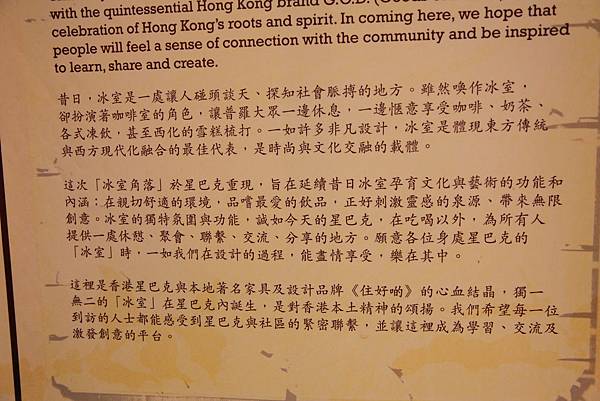 with the quintessential Hong Kong brand G.O.D.
celebration of Hong Kong's roots and spirit. In coming here, we hope that
people will feel a sense of connection with the community and be inspired
to learn, share and create.
昔日，冰室是一處讓人碰頭談天、探知社會脈搏的地方。雖然喚作冰室，
卻扮演著咖啡室的角色，讓普羅大眾一邊休息，一邊愜意享受咖啡、奶茶、
各式凍飲，甚至西化的雪糕梳打。一如許多非凡設計，冰室是體現東方傳統
與西方現代化融合的最佳代表，是時尚與文化交融的載體。
這次「冰室角落」於星巴克重現，旨在延續昔日冰室孕育文化與藝術的功能和
內涵；在親切舒適的環境，品嚐最愛的飲品，正好刺激靈感的泉源、帶來無限
創意。冰室的獨特氛圍與功能，誠如今天的星巴克，在吃喝以外，為所有人
提供一處休憩、聚會、聯繫、交流、分享的地方。願意各位身處星巴克的
「冰室」時，一如我們在設計的過程，能盡情享受，樂在其中。
這裡是香港星巴克與本地著名家具及設計品牌《住好啲》的心血結晶，獨一
無二的「冰室」在星巴克內誕生，是對香港本土精神的頌揚。我們希望每一位
到訪的人士都能感受到星巴克與社區的緊密聯繫，並讓這裡成為學習、交流及
激發創意的平台。